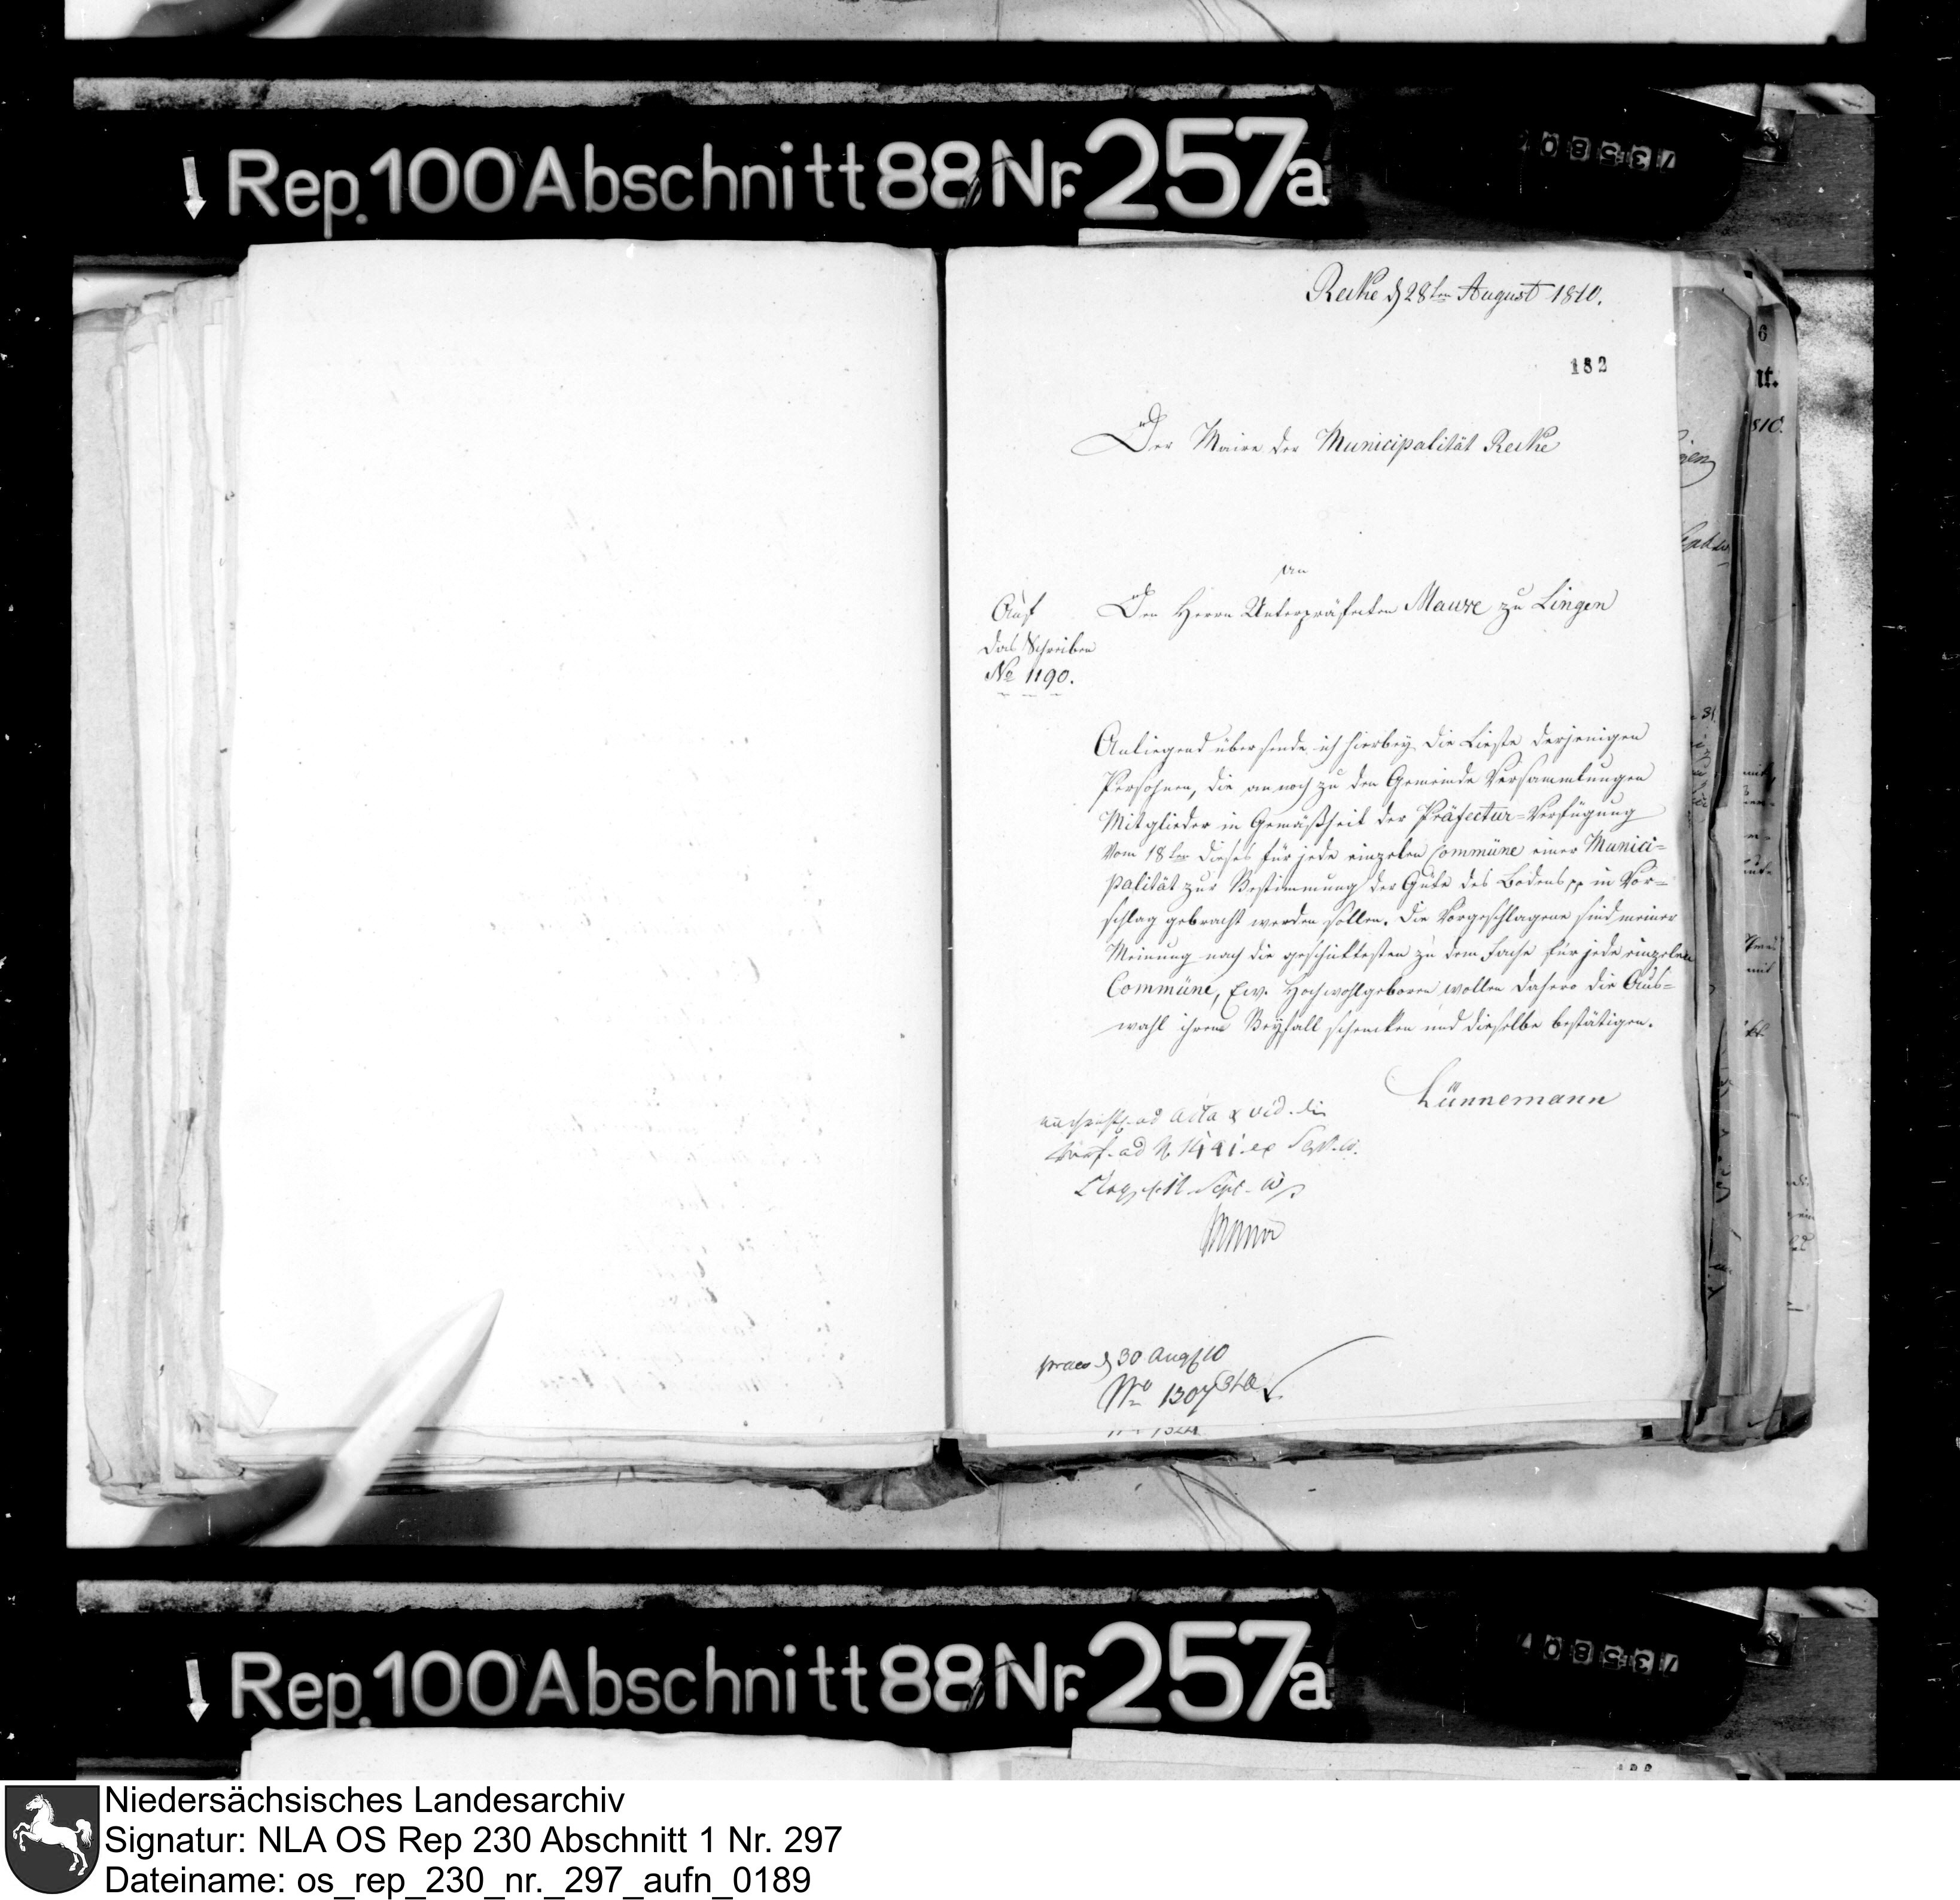 Rep. 100 Abschnitt 88 Nr. 257a
Recke d 28ten August 1810.
182
Der Maire der Municipalität Recke
an
Den Herrn Unterpräfecten Mauve zu Lingen
Auf
das Schreiben
No 1190.
Anliegend übersende ich hierbey die Lieste derjenigen
Persohnen, die annoch zu den Gemeinde Versammlungen
Mitglieder in Gemäßheit der Präfectur-Verfügung
vom 18ten dieses für jede einzelen Commüne einer Munici-
palität zur Bestimmung der Güte des Bodens pp in Vor-
schlag gebracht werden sollen. Die Vorgeschlagene sind meiner
Meinung nach die geschicktesten zu dem Fache für jede einzelen
Commüne, Ew. Hochwohlgeboren wollen dahero die Aus-
wahl ihren Beyfall schencken und dieselbe bestätigen.
Lünnemann
ad acta & vid. die
Verf. ad N. 1491 ex Sept. c.
Sept.
praes d 30 Aug 10
No 1307
Rep. 100 Abschnitt 88 Nr. 257a
Niedersächsisches Landesarchiv
Signatur: NLA OS Rep 230 Abschnitt 1 Nr. 297
Dateiname: os_rep_230_nr._297_aufn_0189